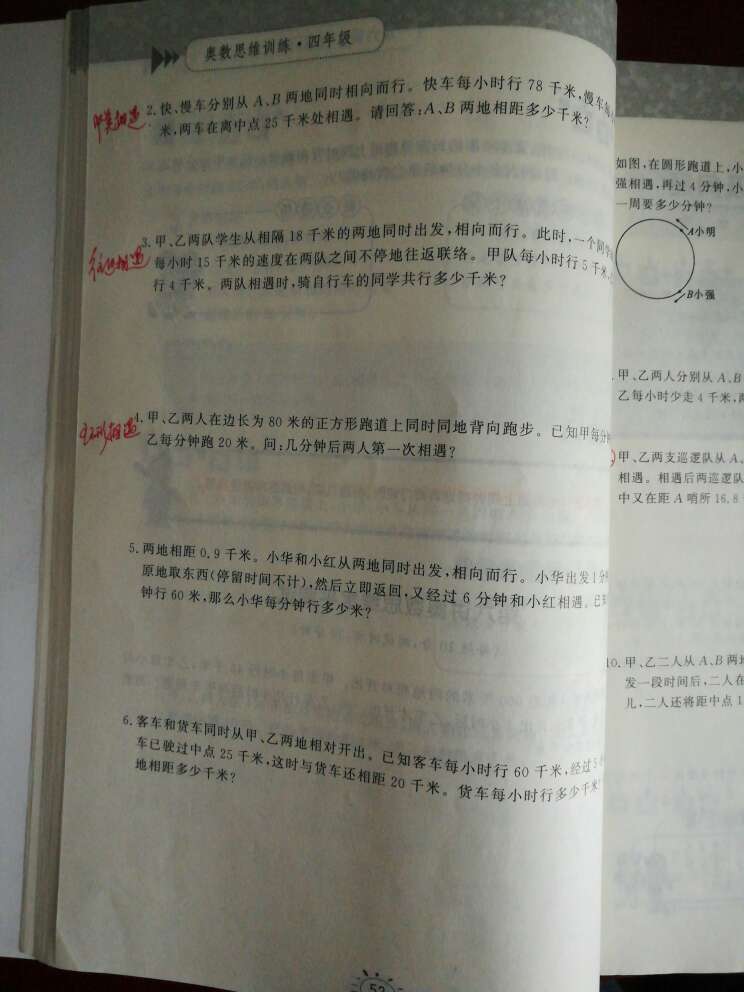 奥数思维训练·四年级
中点相遇
2.快、慢车分别从A、B两地同时相向而行。快车每小时行78千米,慢车每
米,两车在离中点25千米处相遇。请回答:A、B两地相距多少千米?
往返相遇
3.甲、乙两队学生从相隔18千米的两地同时出发,相向而行。此时,一个同学
每小时15千米的速度在两队之间不停地往返联络。甲队每小时行5千米,
行4千米。两队相遇时,骑自行车的同学共行多少千米?
环形相遇
4.甲、乙两人在边长为80米的正方形跑道上同时同地背向跑步。已知甲每分
乙每分钟跑20米。问:几分钟后两人第一次相遇?
5.两地相距0.9千米。小华和小红从两地同时出发,相向而行。小华出发1分
原地取东西(停留时间不计),然后立即返回,又经过6分钟和小红相遇。已
钟行60米,那么小华每分钟行多少米?
6.客车和货车同时从甲、乙两地相对开出。已知客车每小时行60千米,经过5
车已驶过中点25千米,这时与货车还相距20千米。货车每小时行多少千米
地相距多少千米?
52
如图,在圆形跑道上,小
强相遇,再过4分钟,小
一周要多少分钟?
A小明
B小强
甲、乙两人分别从A、B
乙每小时少走4千米,
甲、乙两支巡逻队从A、
相遇。相遇后两巡逻队
中又在距A哨所16.8
10.甲、乙二人从A、B两地
发一段时间后,二人在
儿,二人还将距中点1